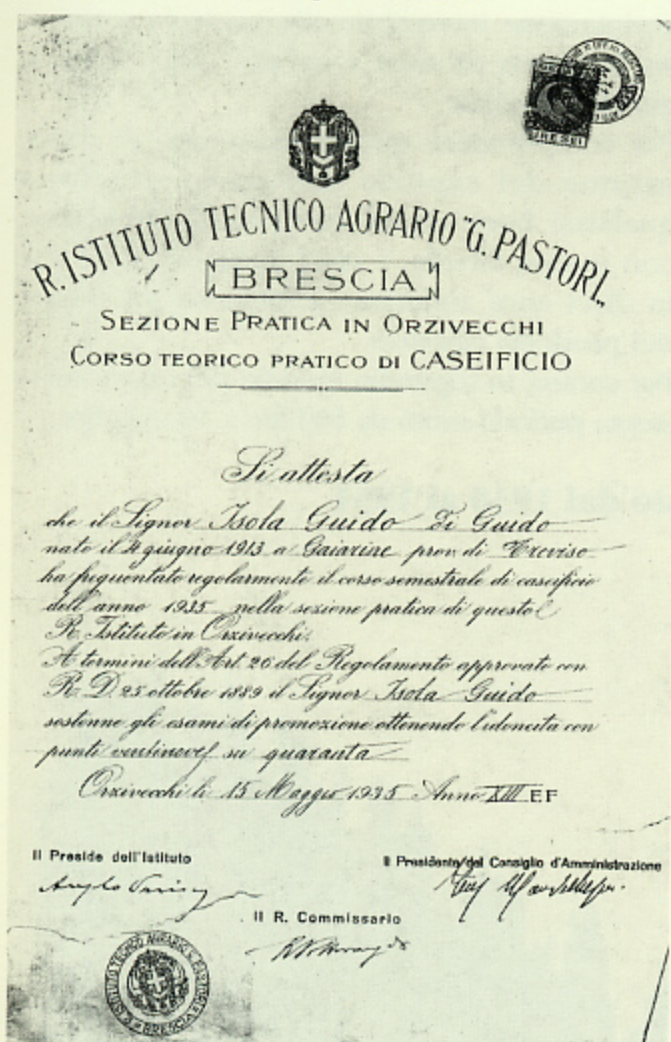 R. ISTITUTO TECNICO AGRARIO "G. PASTORI„
BRESCIA
SEZIONE PRATICA IN ORZIVECCHI
CORSO TEORICO PRATICO DI CASEIFICIO
Si attesta
che il Signor Isola Guido di Guido
nato il 4 giugno 1913 a Gaiarine prov. di Treviso
ha frequentato regolarmente il corso semestrale di caseificio
dell'anno 1935 nella sezione pratica di questo
R. Istituto in Orzivecchi.
A termini dell'Art. 26 del Regolamento approvato con
R. D. 25 ottobre 1889 il Signor Isola Guido
sostenne gli esami di promozione ottenendo l'idoneità con
punti ventinove su quaranta
Orzivecchi li 15 Maggio 1935 Anno XIII EF
Il Preside dell'Istituto
Il Presidente del Consiglio d'Amministrazione
Il R. Commissario
R. ISTITUTO TECNICO AGRARIO G. PASTORI
BRESCIA